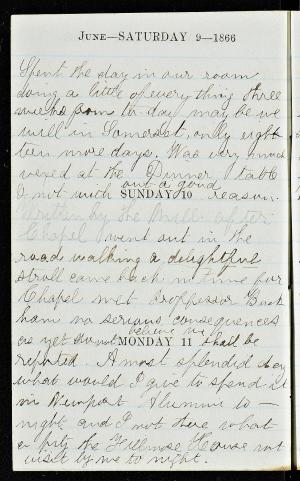 June—SATURDAY 9—1866
Spent the day in our room
doing a little of every thing three
weeks from to day may be we
will in Somerset, only eigh
teen more days. Was very much
vexed at the Dinner table
out a good
I not with reason.
SUNDAY 10
Written by the after
Chapel went out in the
road walking a delightful
stroll came back in time for
Chapel met Proffessor Buck
ham no serious consequences
as yet do not believe will
MONDAY 11 shall be
reported. A most splendid day
what would I give to spend it
in Newport Alumni to—
night and I not there what
a pity the Fillmore House not
visit by me to night.